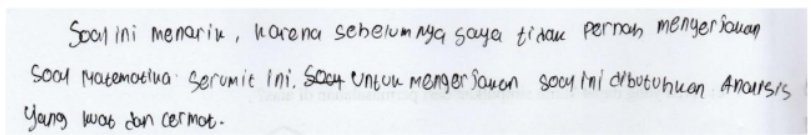 Soal ini menarik, karena sebelumnya saya tidak pernah mengerjakan
soal matematika serumit ini. Soal untuk mengerjakan soal ini dibutuhkan Analisis
yang kuat dan cermat.